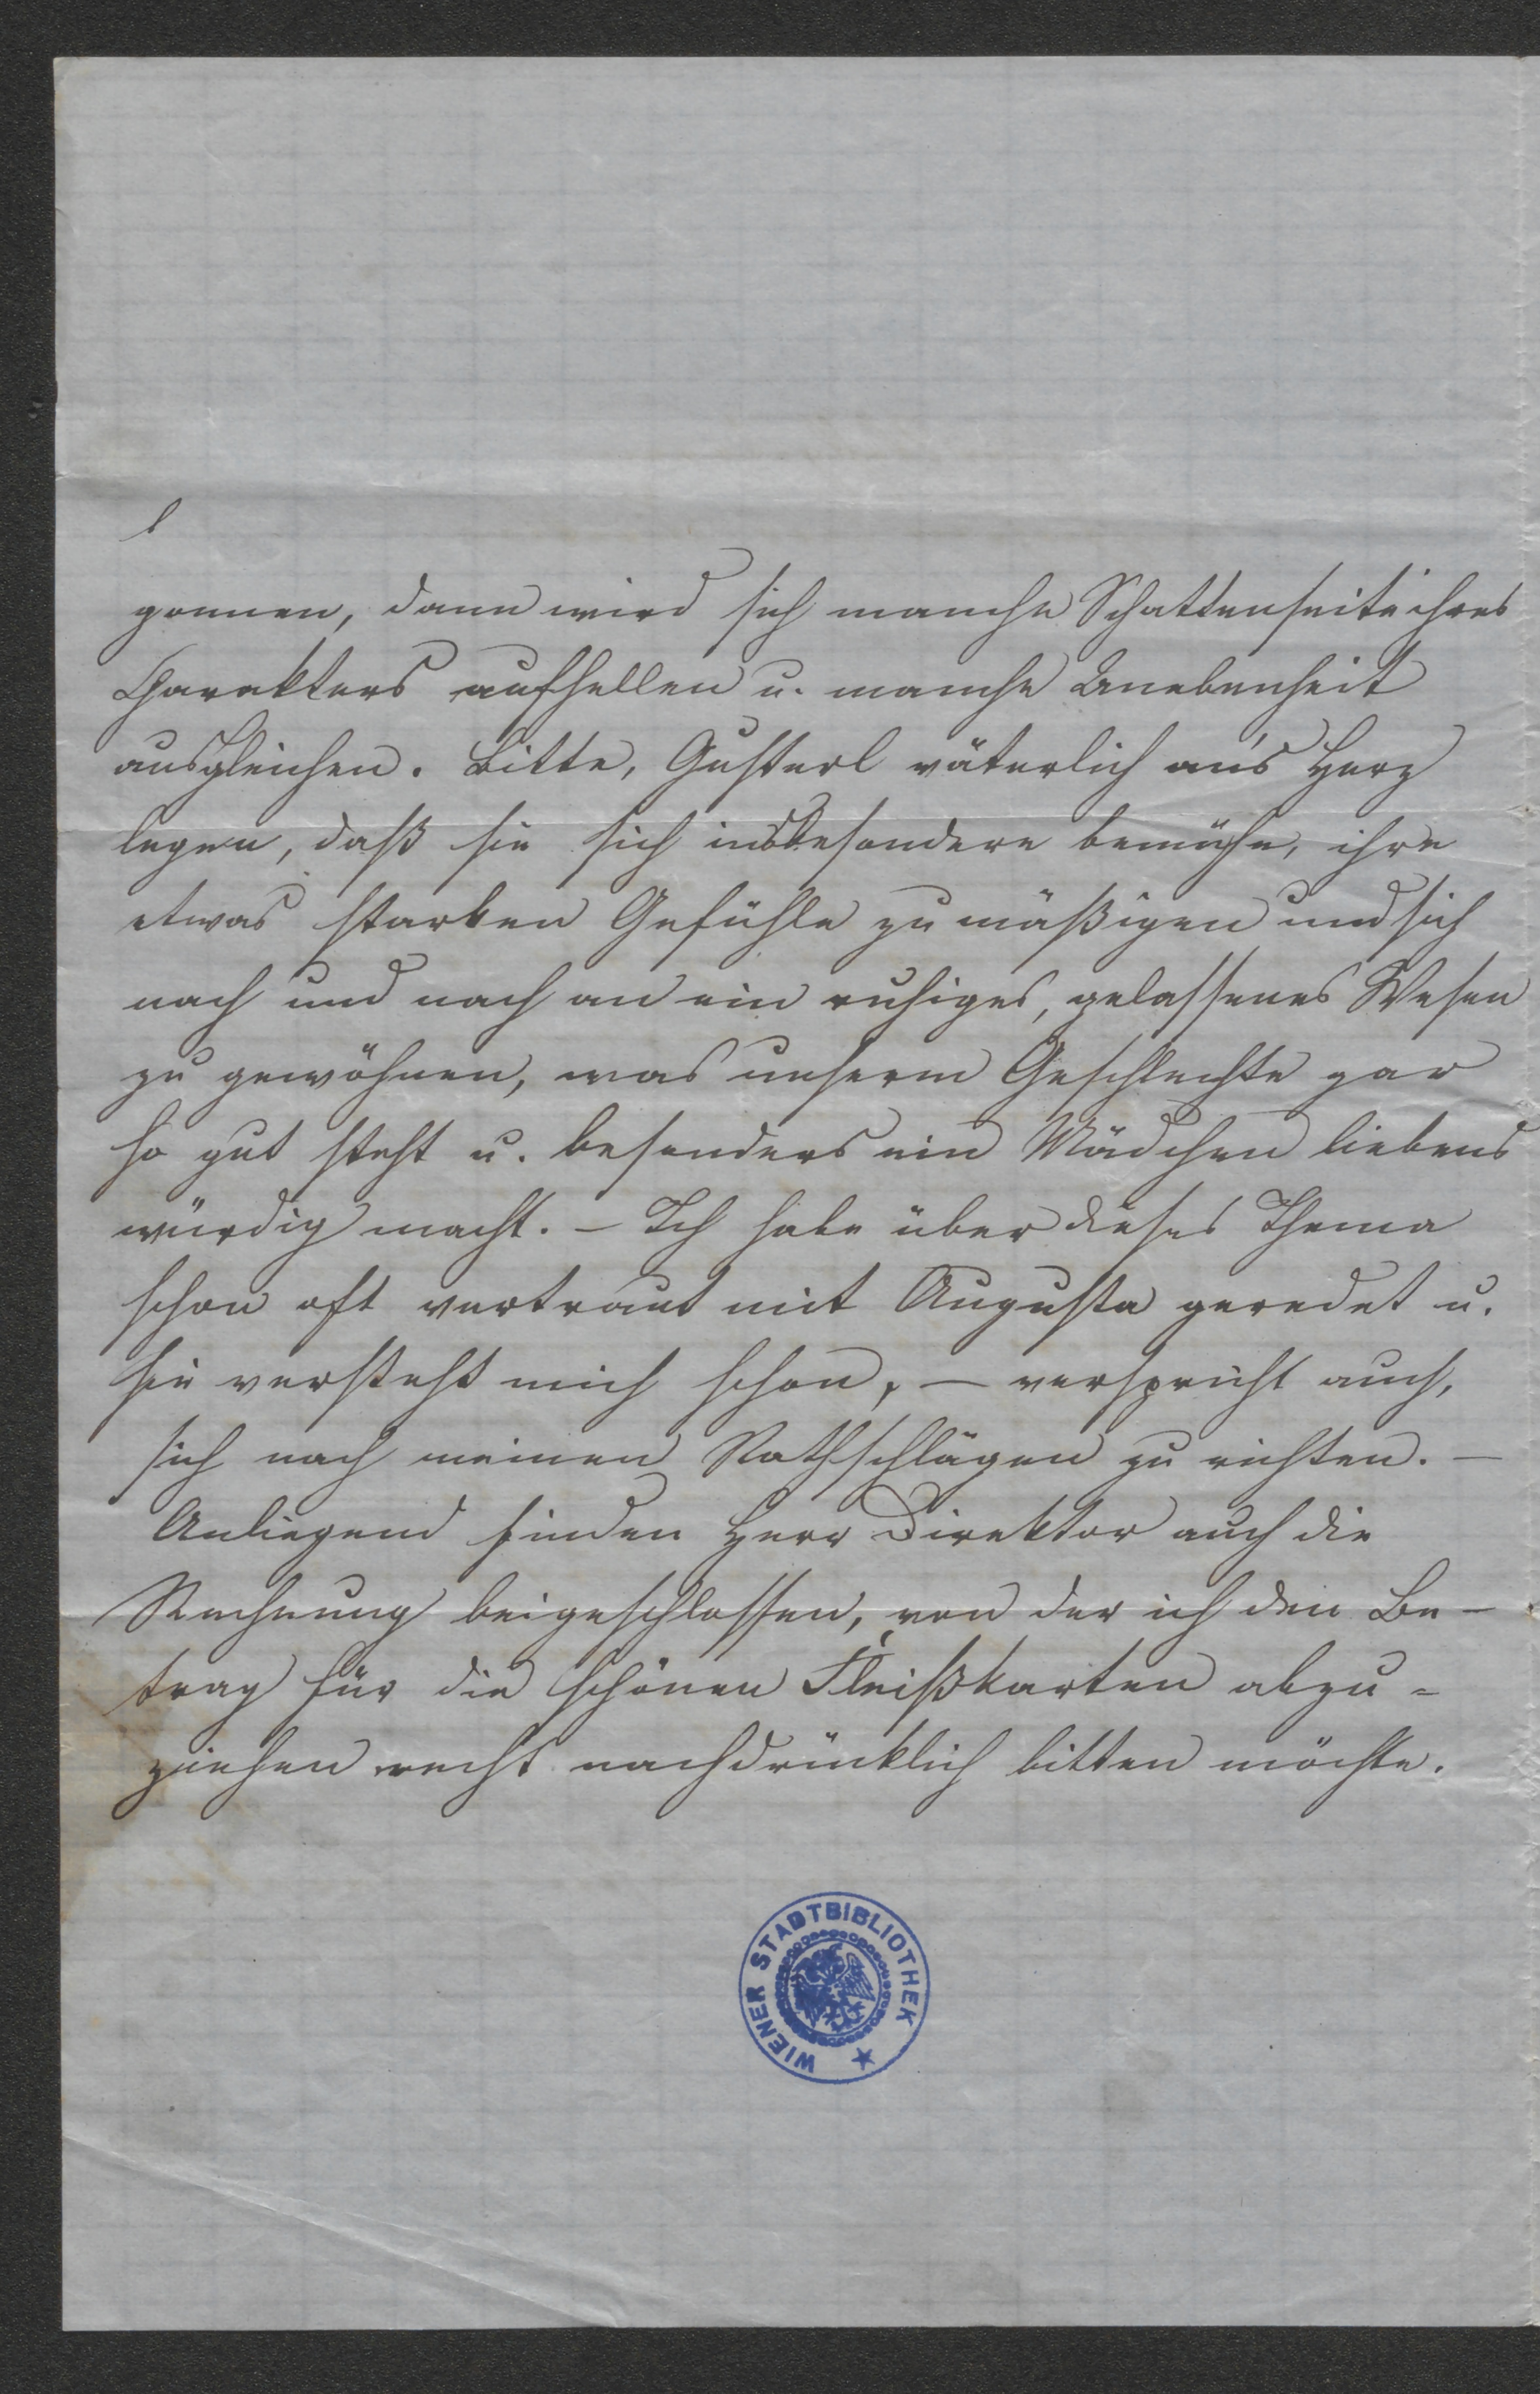 gonnen, dann wird sich manche Schattenseite ihres
Charakters aufhellen u. manche Unebenheit
ausgleichen. Bitte, Gusterl väterlich an's Herz
legen, daß sie sich insbesondere bemühe, ihre
etwas starken Gefühle zu mäßigen und sich
nach und nach an ein ruhiges, gelassenes Wesen
zu gewöhnen, was unserm Geschlechte gar
so gut steht u. besonders ein Mädchen liebens
würdig macht. – Ich habe über dieses Thema
schon oft vertraut mit Augusta geredet u.
sie versteht mich schon, – verspricht auch,
sich nach meinen Rathschlägen zu richten. –
Anliegend finden Herr Direktor auch die
Rechnung beigeschlossen, von der ich den Be-
trag für die schönen Fleißkarten abzu=
ziehen recht nachdrücklich bitten möchte.
WIENER STADTBIBLIOTHEK